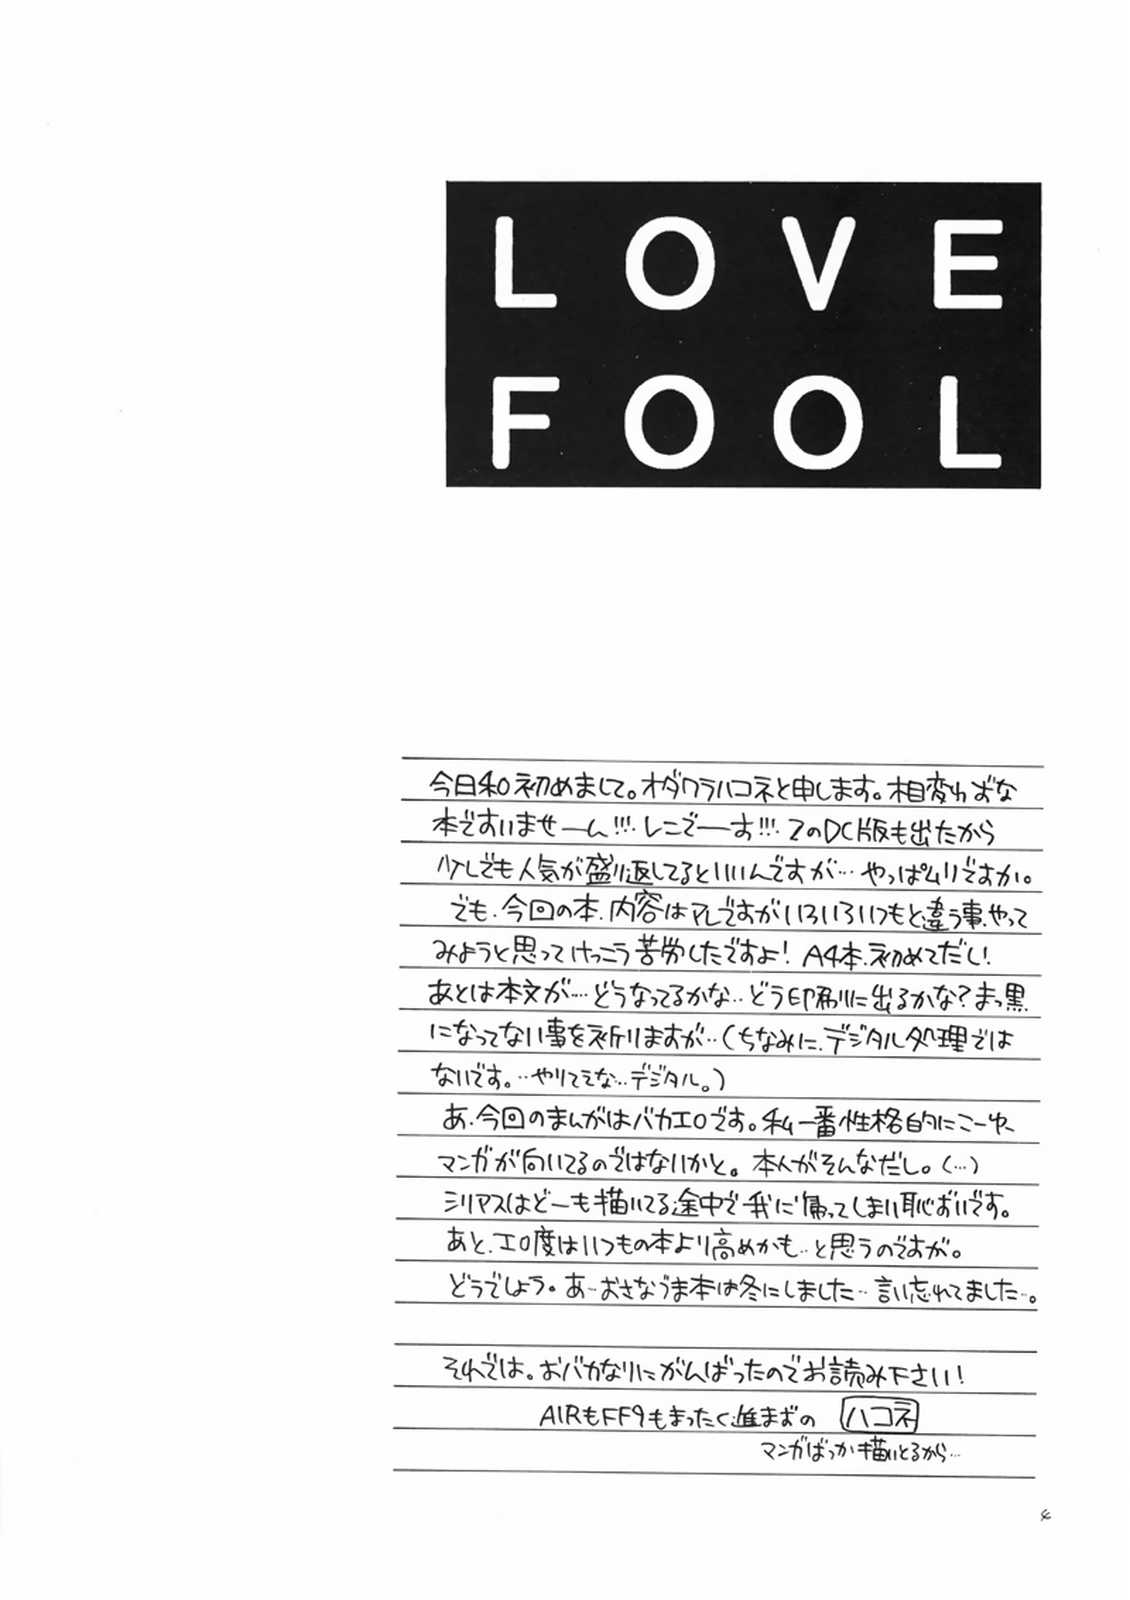 LOVE
FOOL
今日和初めまして。オダワラハコネと申します。相変わおな
本ですいませーーん!!!・レニでーーす!!!・2のDC版も出たから
少しでも人気が盛り返してるといいんですが…やっぱムリですか。
でも、今回の本、内容はアレですがいろいろいつもと違う事、やって
みようと思ってけっこう苦労したですよ! A4本、初めてだし!
あとは本文が…どうなってるかな‥どう印刷に出るかな?まっ黒
になってない事を祈りますが‥(ちなみに、デジタル処理では
ないです。‥やりてえな…デジタル。)
あ、今回のまんがはバカエロです。私一番性格的にこーゆ
マンガが向いてるのではないかと。本人がそんなだし。(…)
シリアスはどーも描いてる途中で我に帰ってしまい恥ずいです。
あと、エロ度はいつもの本より高めかも‥と思うのですが。
どうでしょう。あ‥おさなづま本は冬にしました‥言い忘れてました‥。
それでは。おバカなりにがんばったのでお読み下さい!
AIRもFF9もまったく進まずの ハコネ
マンガばっか描いとるから…
4